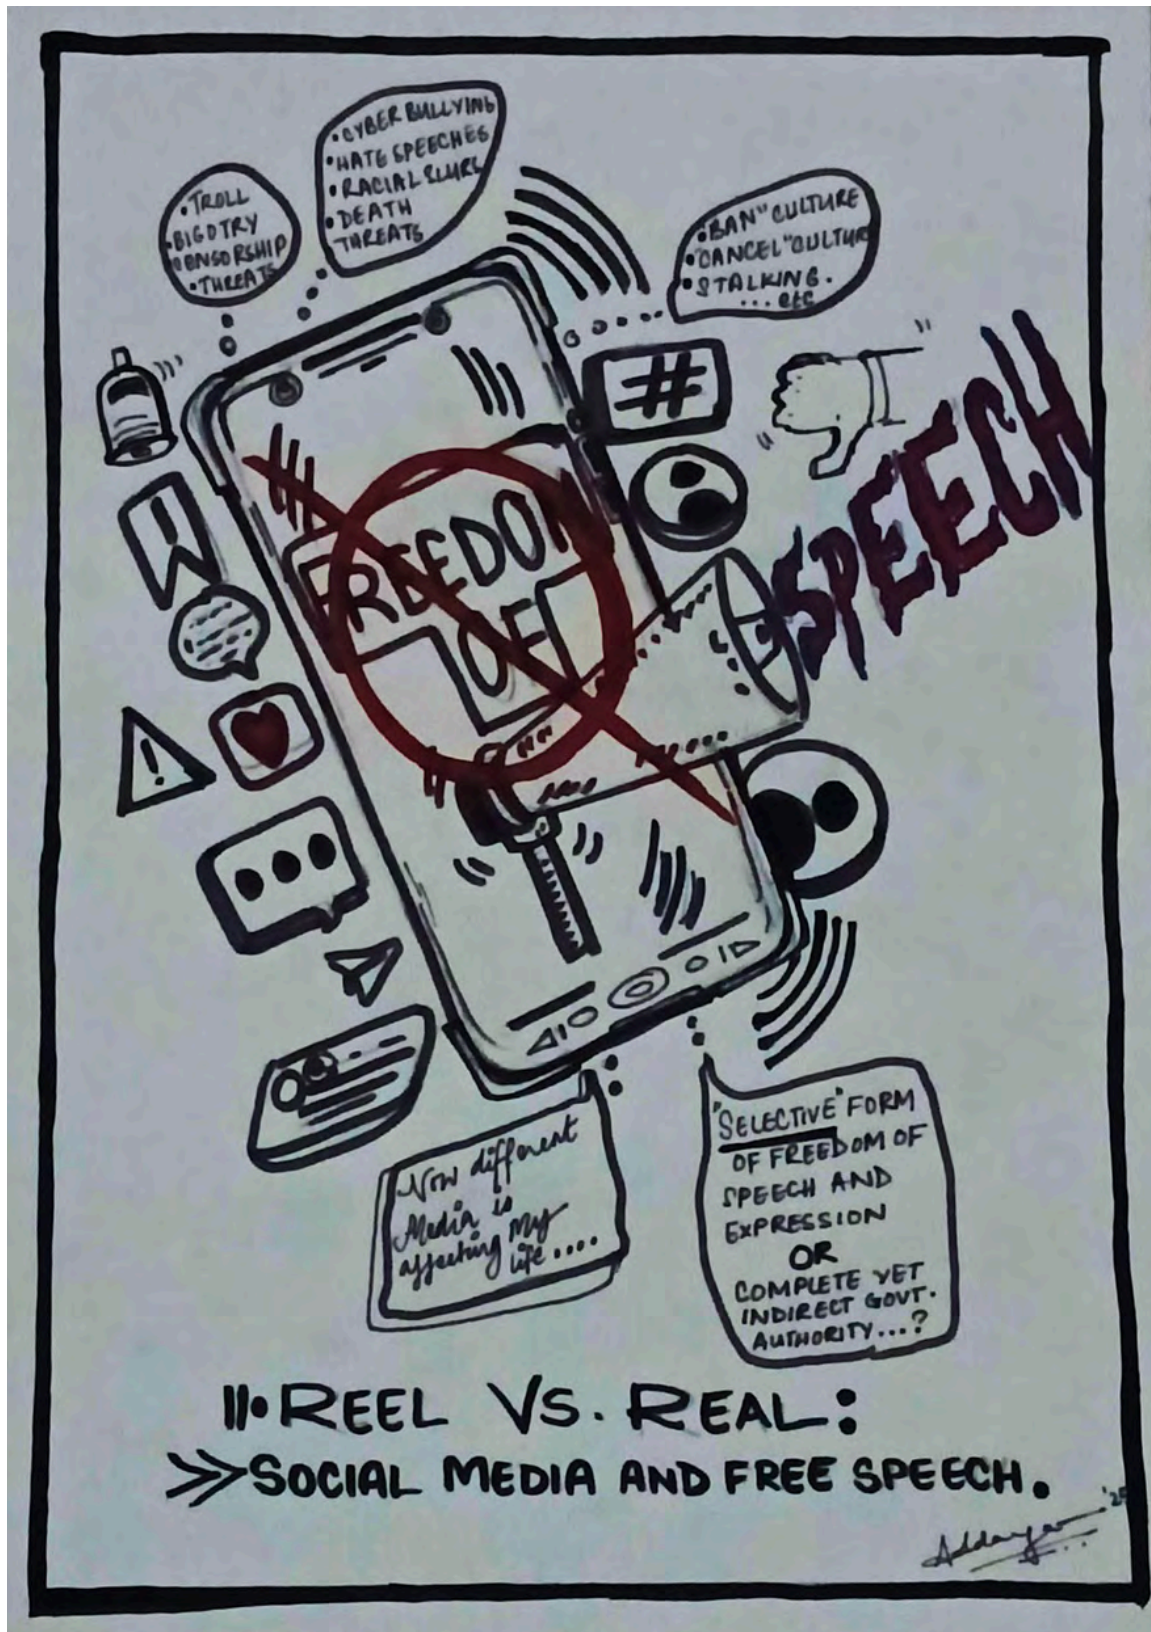 • TROLL
• BIGOTRY
CENSORSHIP
• THREATS
• CYBER BULLYING
• HATE SPEECHES
• RACIAL SLURS
• DEATH
THREATS
• BAN" CULTURE
• "CANCEL" CULTURE
• STALKING.
... etc
#
FREEDOM
OF
SPEECH
!
Now different
Media is
affecting My
life ....
"SELECTIVE" FORM
OF FREEDOM OF
SPEECH AND
EXPRESSION
OR
COMPLETE YET
INDIRECT GOVT.
AUTHORITY...?
REEL VS. REAL:
>> SOCIAL MEDIA AND FREE SPEECH.